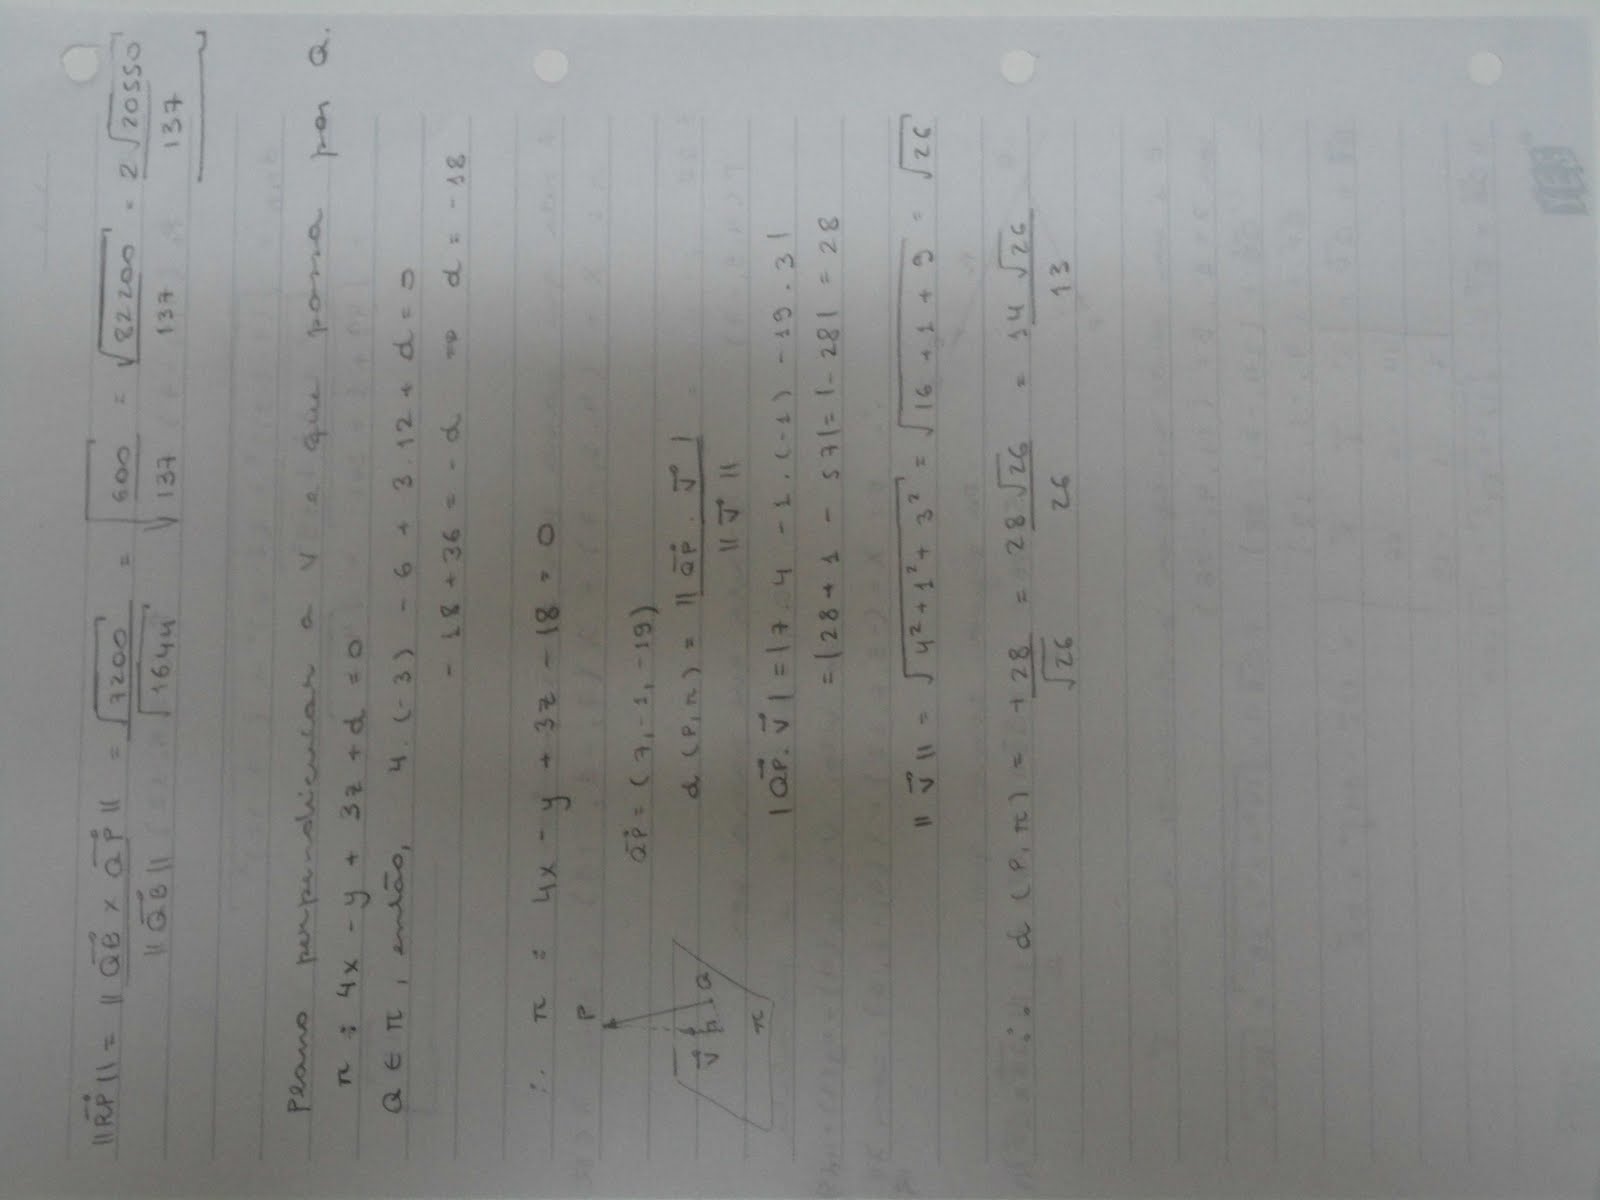 ||R⃗P|| = ||Q⃗B x Q⃗P|| / ||Q⃗B|| = √7200 / √1644 = √600 / √137 = √82200 / 137 = 2√20550 / 137
Plano perpendicular a v e que passa por Q.
π : 4x - y + 3z + d = 0
Q ∈ π, então, 4.(-3) - 6 + 3.12 + d = 0
-18 + 36 = -d ⇒ d = -18
∴ π : 4x - y + 3z - 18 = 0
P
Q⃗P = (7, -1, -19)
v⃗ n Q
d(P, π) = ||Q⃗P . v⃗| / ||v⃗||
π
|Q⃗P . v⃗| = |7 . 4 - 1 . (-1) - 19 . 3|
= |28 + 1 - 57| = |-28| = 28
||v⃗|| = √4² + 1² + 3² = √16 + 1 + 9 = √26
∴ d(P, π) = +28 / √26 = 28√26 / 26 = 14√26 / 13